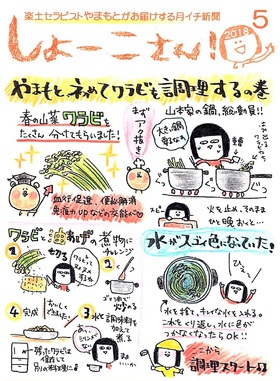 楽土セラピストやまもとがお届けする月イチ新聞
しょーこさん!
2018
5
やまもと、初めてワラビを調理するの巻
春の山菜ワラビを
たくさん分けてもらいました!
血行促進、便秘解消
免疫力UPなどの効能が♡
まずアク抜き
山本家の鍋、総動員!!
大きい鍋
火を止め、そのまま
ひと晩おくと…
ワラビとあげの煮物に
チャレンジ
1 切る
2
ごま油で
炒める
3 水と調味料を
加えて
煮る
4 完成
残ったワラビは
別の料理に
水がスゴイ色になっていた!
水を捨て、キレイな水を入れる。
これをくり返し、水に色が
つかなくなったらOK!!
ここから
調理スタート